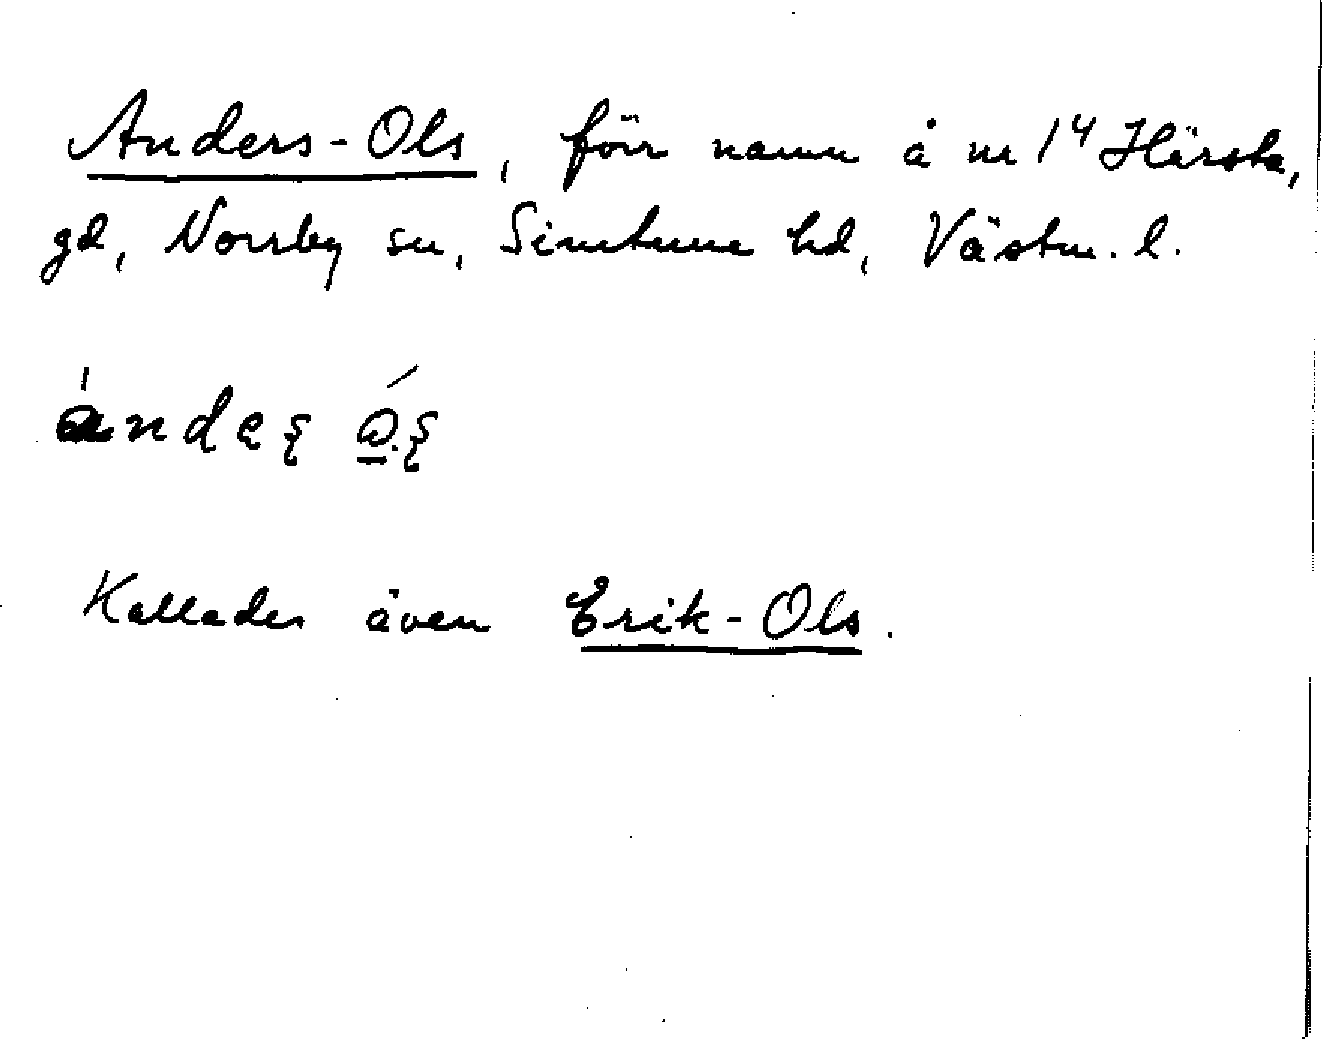 Anders-Ols, förr namn å nr 1⁴ Härsta,
gd, Norrby sn, Simtuna hd, Västm. l.
Kallades även Erik-Ols.